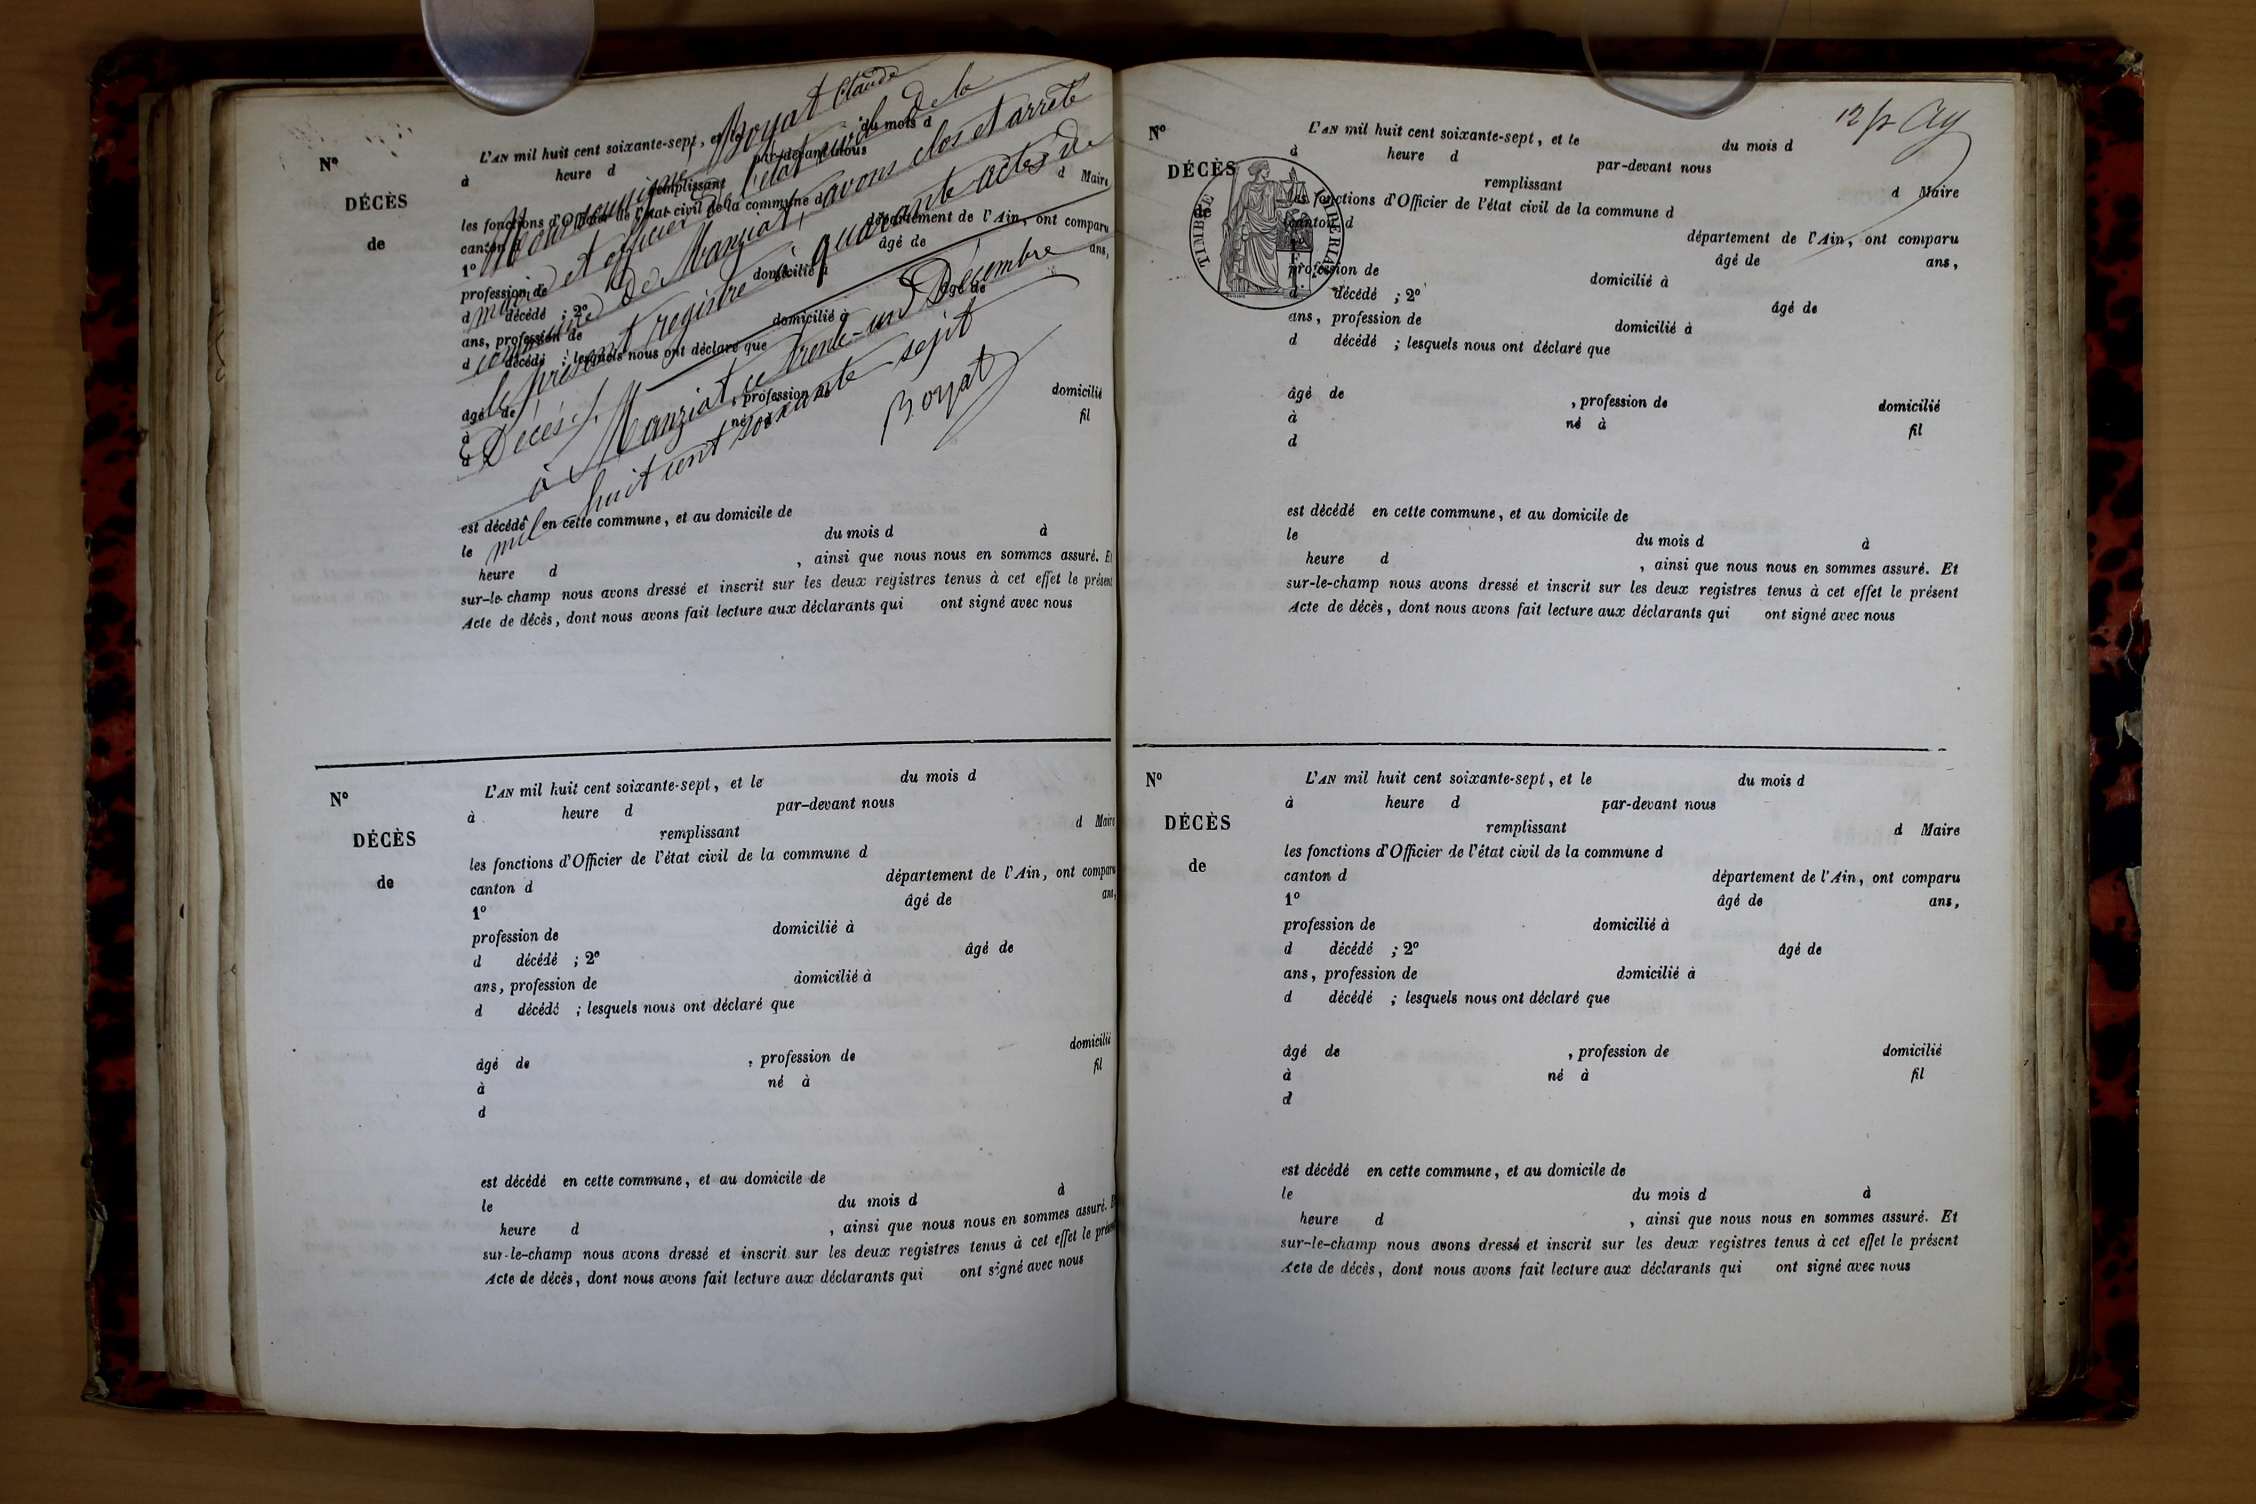 Nous soussigné, Boyat Claude
maire et officier de l'état civil de la
commune de Manziat, avons clos et arrêté
le présent registre à quarante actes de
Décès.
à Manziat, ce trente-un Décembre
mil huit cent soixante-sept
Boyat
N°
DÉCÈS
de
L'AN mil huit cent soixante-sept, et le du mois d
à heure d par-devant nous
remplissant d Maire
les fonctions d'Officier de l'état civil de la commune d
canton d département de l'Ain, ont comparu
1° âgé de ans,
profession de domicilié à
d décédé ; 2° âgé de
ans, profession de domicilié à
d décédé ; lesquels nous ont déclaré que
âgé de , profession de domicilié
à né à fil
d
est décédé en cette commune, et au domicile de
le du mois d à
heure d , ainsi que nous nous en sommes assuré. Et
sur-le-champ nous avons dressé et inscrit sur les deux registres tenus à cet effet le présent
Acte de décès, dont nous avons fait lecture aux déclarants qui ont signé avec nous
N°
DÉCÈS
de
L'AN mil huit cent soixante-sept, et le du mois d
à heure d par-devant nous
remplissant d Maire
les fonctions d'Officier de l'état civil de la commune d
canton d département de l'Ain, ont comparu
1° âgé de ans,
profession de domicilié à
d décédé ; 2° âgé de
ans, profession de domicilié à
d décédé ; lesquels nous ont déclaré que
âgé de , profession de domicilié
à né à fil
d
est décédé en cette commune, et au domicile de
le du mois d à
heure d , ainsi que nous nous en sommes assuré. E
sur-le-champ nous avons dressé et inscrit sur les deux registres tenus à cet effet le présen
Acte de décès, dont nous avons fait lecture aux déclarants qui ont signé avec nous
12
N°
DÉCÈS
de
TIMBRE IMPÉRIAL
L'AN mil huit cent soixante-sept, et le du mois d
à heure d par-devant nous
remplissant d Maire
les fonctions d'Officier de l'état civil de la commune d
canton d département de l'Ain, ont comparu
âgé de ans,
profession de domicilié à
d décédé ; 2° âgé de
ans, profession de domicilié à
d décédé ; lesquels nous ont déclaré que
âgé de , profession de domicilié
à né à fil
d
est décédé en cette commune, et au domicile de
le du mois d à
heure d , ainsi que nous nous en sommes assuré. Et
sur-le-champ nous avons dressé et inscrit sur les deux registres tenus à cet effet le présent
Acte de décès, dont nous avons fait lecture aux déclarants qui ont signé avec nous
N°
DÉCÈS
de
L'AN mil huit cent soixante-sept, et le du mois d
à heure d par-devant nous
remplissant d Maire
les fonctions d'Officier de l'état civil de la commune d
canton d département de l'Ain, ont comparu
1° âgé de ans,
profession de domicilié à
d décédé ; 2° âgé de
ans, profession de domicilié à
d décédé ; lesquels nous ont déclaré que
âgé de , profession de domicilié
à né à fil
d
est décédé en cette commune, et au domicile de
le du mois d à
heure d , ainsi que nous nous en sommes assuré. Et
sur-le-champ nous avons dressé et inscrit sur les deux registres tenus à cet effet le présent
Acte de décès, dont nous avons fait lecture aux déclarants qui ont signé avec nous